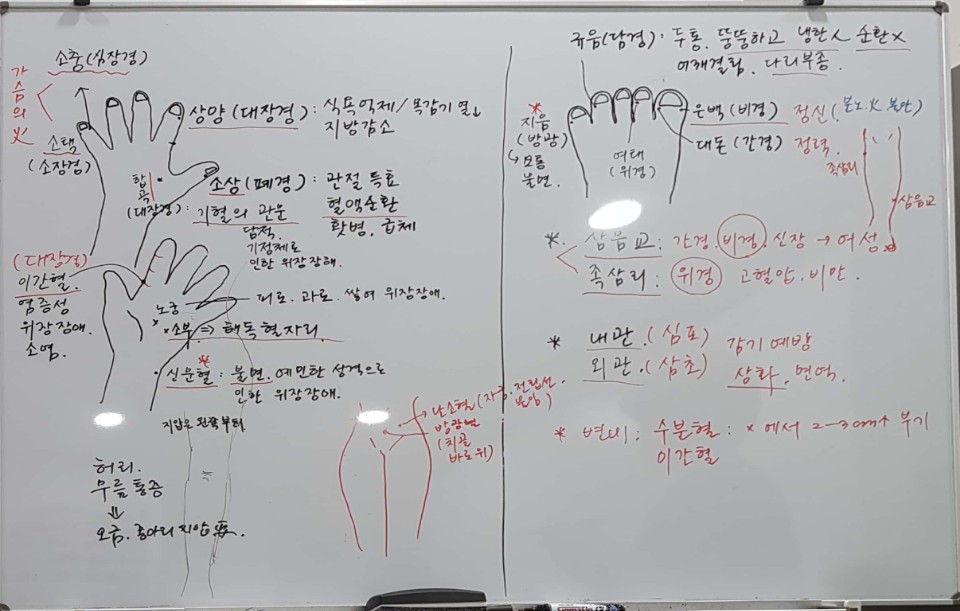 소충(심장경)
가슴의 火
소택
(소장경)
상양(대장경) : 식욕억제/목감기 열.
지방감소
소상(폐경) : 관절 특효
혈액순환
홧병. 급체
합곡
(대장경) : 기혈의 관문
담적.
기정체로
인한 위장장애.
(대장경)
이간혈.
염증성
위장장애.
소염.
노궁
피로. 과로. 쌓여 위장장애.
*소부 => 해독혈자리
신문혈* : 불면. 예민한 성격으로
인한 위장장애.
지압은 왼쪽부터
허리.
무릎통증
⇓
오금. 종아리 지압
난소혈(자궁. 전립선.
방광혈
(치골
바로위)
규음(담경) · 두통. 뚱뚱하고 냉한人 순환×
어깨결림. 다리부종.
*
지음
(방광)
↳ 요통
불면.
여태
(위경)
은백(비경) 정신(
대돈(간경) 정력.
족삼리
삼음교
*. 삼음교 : 간경. 비경. 신장 → 여성.
족삼리 : 위경 고혈압. 비만
* 내관.(심포) 감기예방
외관.(삼초) 상화. 면역.
* 변비 : 수분혈 : × 에서 2-3cm↑ 부기
이간혈